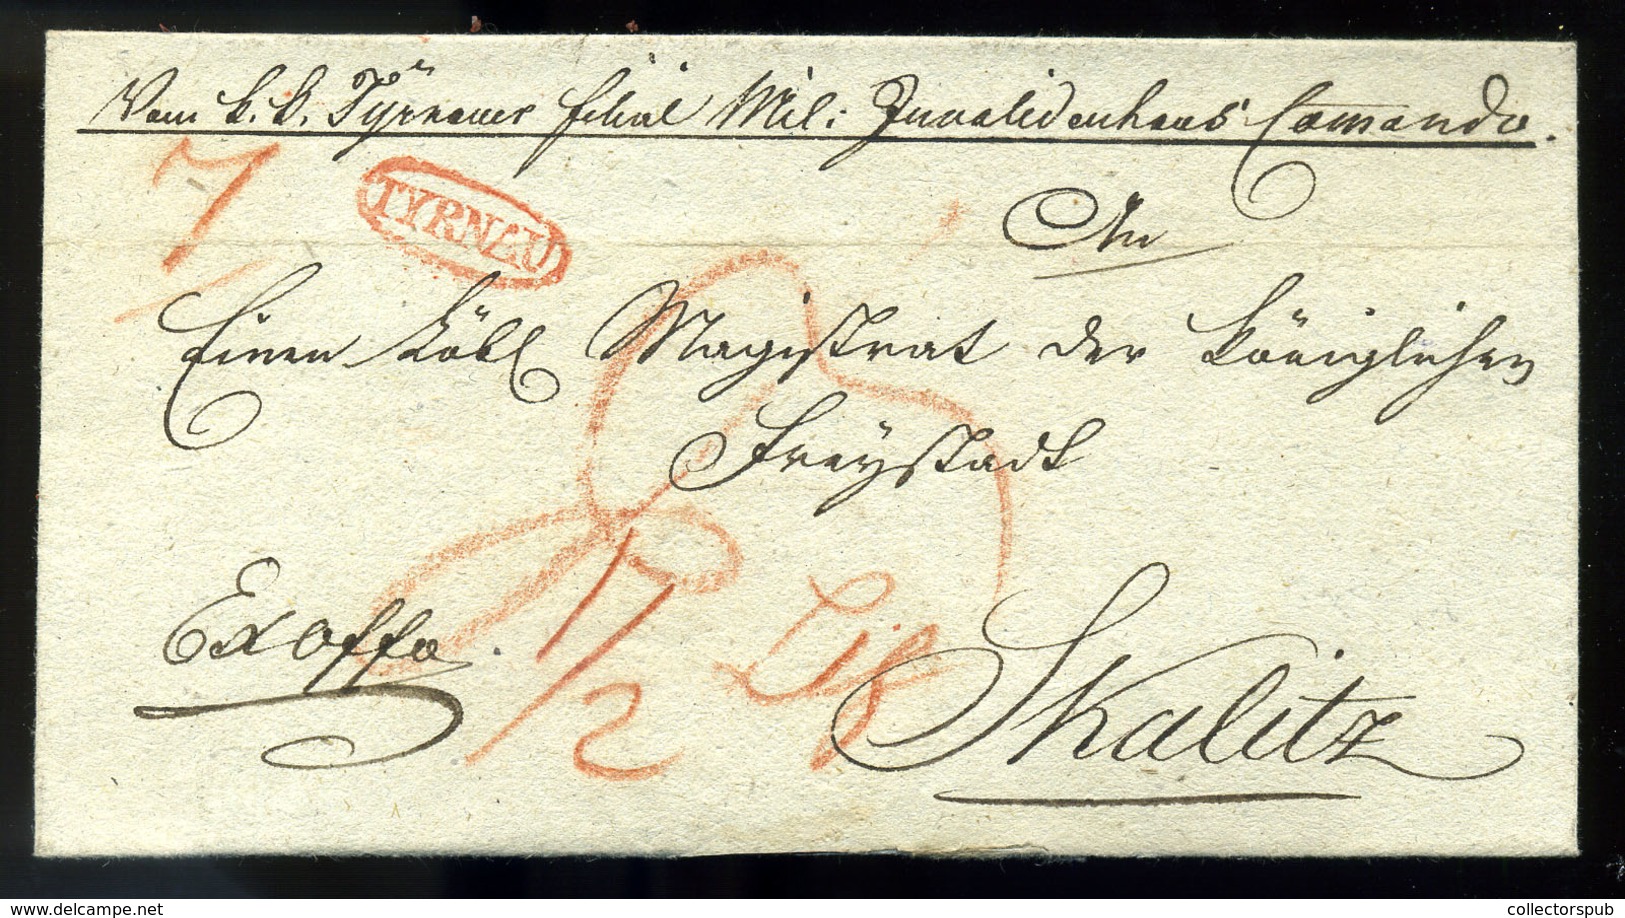 Vom k. k. Tÿrnauer filial Mil: Invalidenhaus Comando.
7
TYRNAU
An
Einen Löbl Magistrat der Königlichen
Freÿstadt
Exoffo.
1/2
Skalitz
delcampe.net
collectorspub